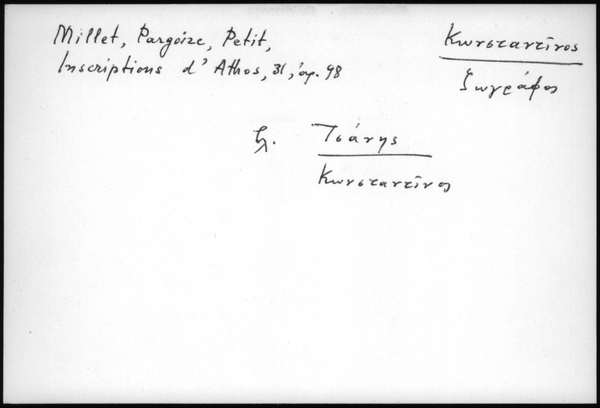 Millet, Pargoire, Petit,
Inscriptions d'Athos, 31, ἀρ. 98
Κωνσταντῖνος
ζωγράφος
Τσάνης
Κωνσταντῖνος